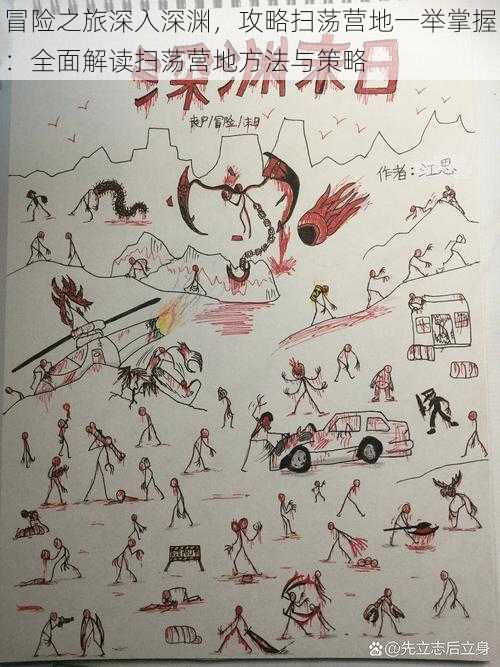 冒险之旅深入深渊，攻略扫荡营地一举掌握
：全面解读扫荡营地方法与策略
深渊末日
丧尸/冒险/末日
作者：江思
@先立志后立身